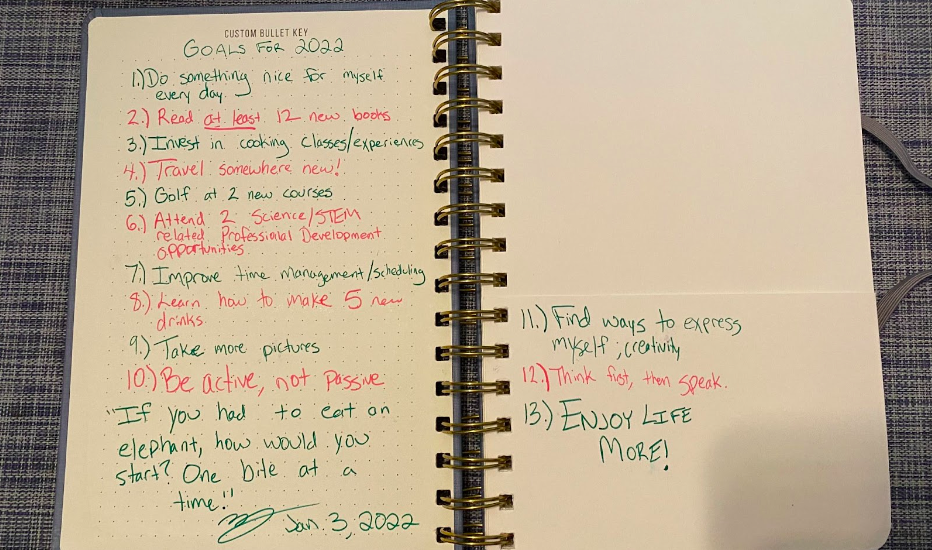 CUSTOM BULLET KEY
GOALS FOR 2022
1.) Do something nice for myself
every day.
2.) Read at least 12 new books
3.) Invest in cooking classes/experiences
4.) Travel somewhere new!
5.) Golf at 2 new courses
6.) Attend 2 Science/STEM
related Professional Development
opportunities.
7.) Improve time management/scheduling
8.) Learn how to make 5 new
drinks.
9.) Take more pictures
10.) Be active, not passive
"If you had to eat an
elephant, how would you
start? One bite at a
time!"
Jan. 3, 2022
11.) Find ways to express
myself; creativity
12.) Think first, then speak.
13.) ENJOY LIFE
MORE!